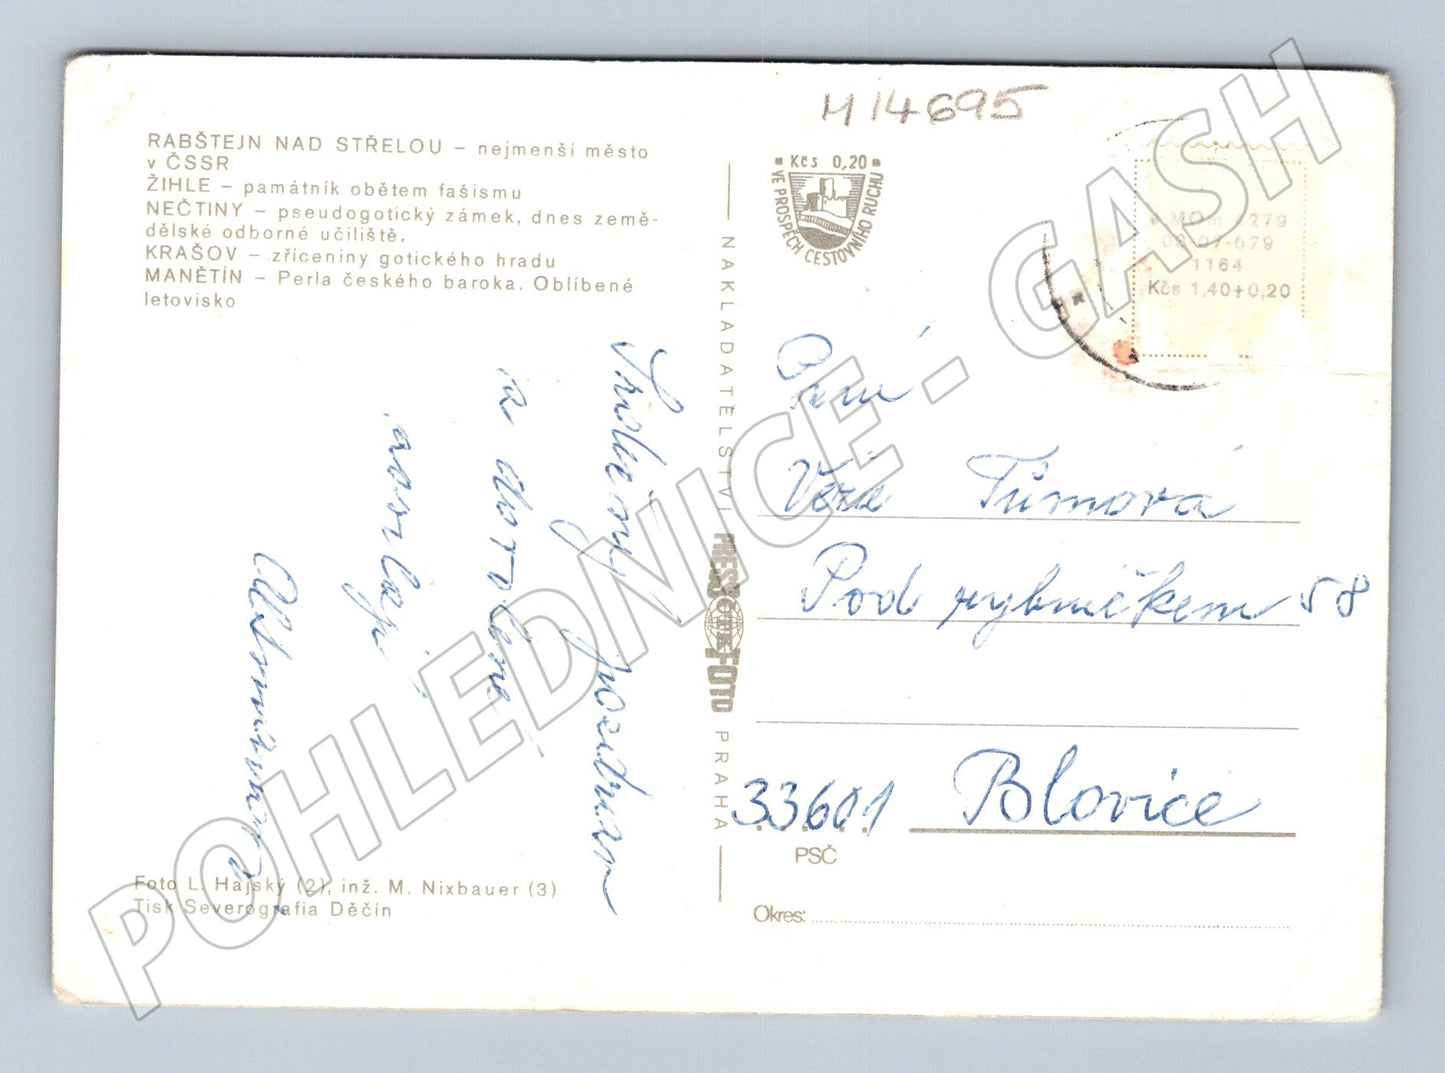 RABŠTEJN NAD STŘELOU – nejmenší město
v ČSSR
ŽIHLE – památník obětem fašismu
NEČTINY – pseudogotický zámek, dnes země-
dělské odborné učiliště.
KRAŠOV – zříceniny gotického hradu
MANĚTÍN – Perla českého baroka. Oblíbené
letovisko
Srdečný pozdrav
a
Foto L. Hajský (2), inž. M. Nixbauer (3)
Tisk Severografia Děčín
NAKLADATELSTVÍ PRESSFOTO PRAHA
H 14695
Kčs 0,20
VE PROSPĚCH CESTOVNÍHO RUCHU
1164
Kčs 1,40+0,20
Paní
Věra Tůmová
Pod rybníčkem 58
33601 Blovice
PSČ
Okres:
POHLEDNICE - GASH